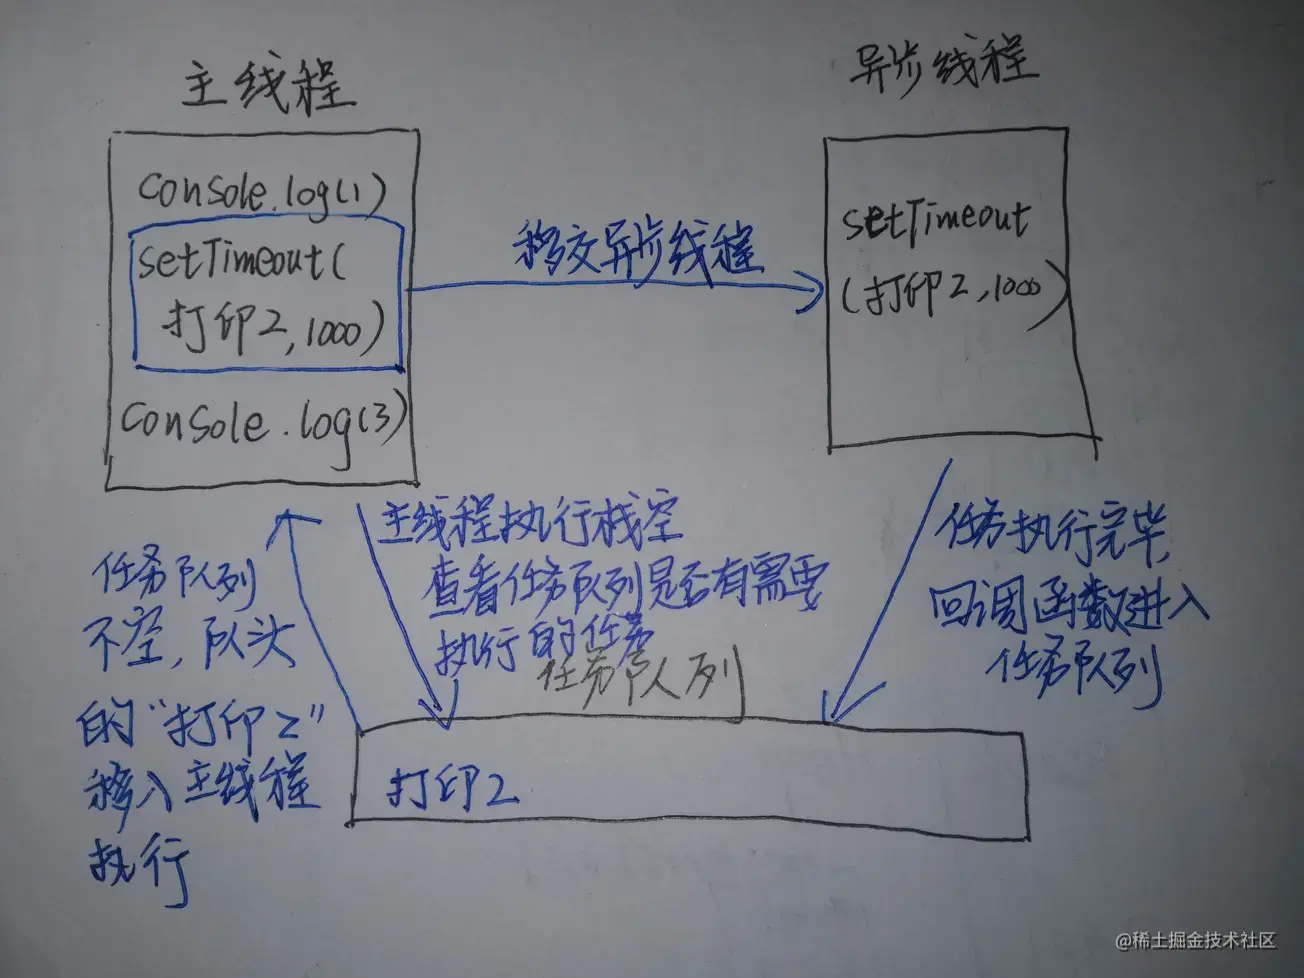 主线程
console.log(1)
setTimeout(
打印2,1000)
console.log(3)
移交异步线程
异步线程
setTimeout
(打印2,1000)
任务队列
不空,队头
的“打印2”
移入主线程
执行
主线程执行栈空
查看任务队列是否有需要
执行的任务
任务执行完毕,
回调函数进入
任务队列
任务队列
打印2
@稀土掘金技术社区